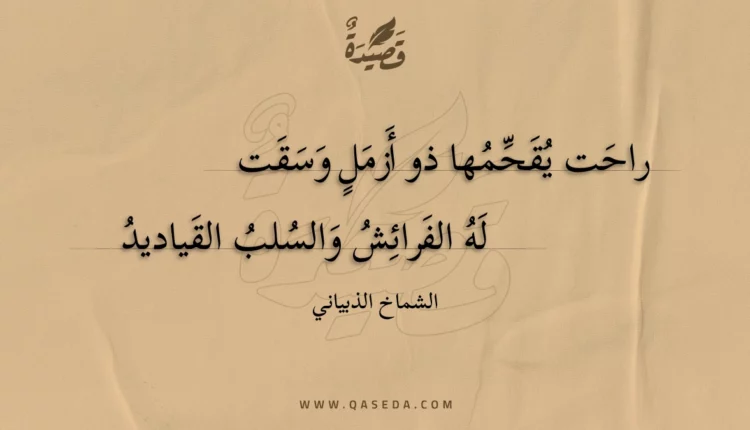 قَصِيدَةٌ
راحَت يُقَحِّمُها ذو أَزمَلٍ وَسَقَت
لَهُ الفَرائِشُ وَالسُلبُ القَياديدُ
الشماخ الذبياني
WWW.QASEDA.COM